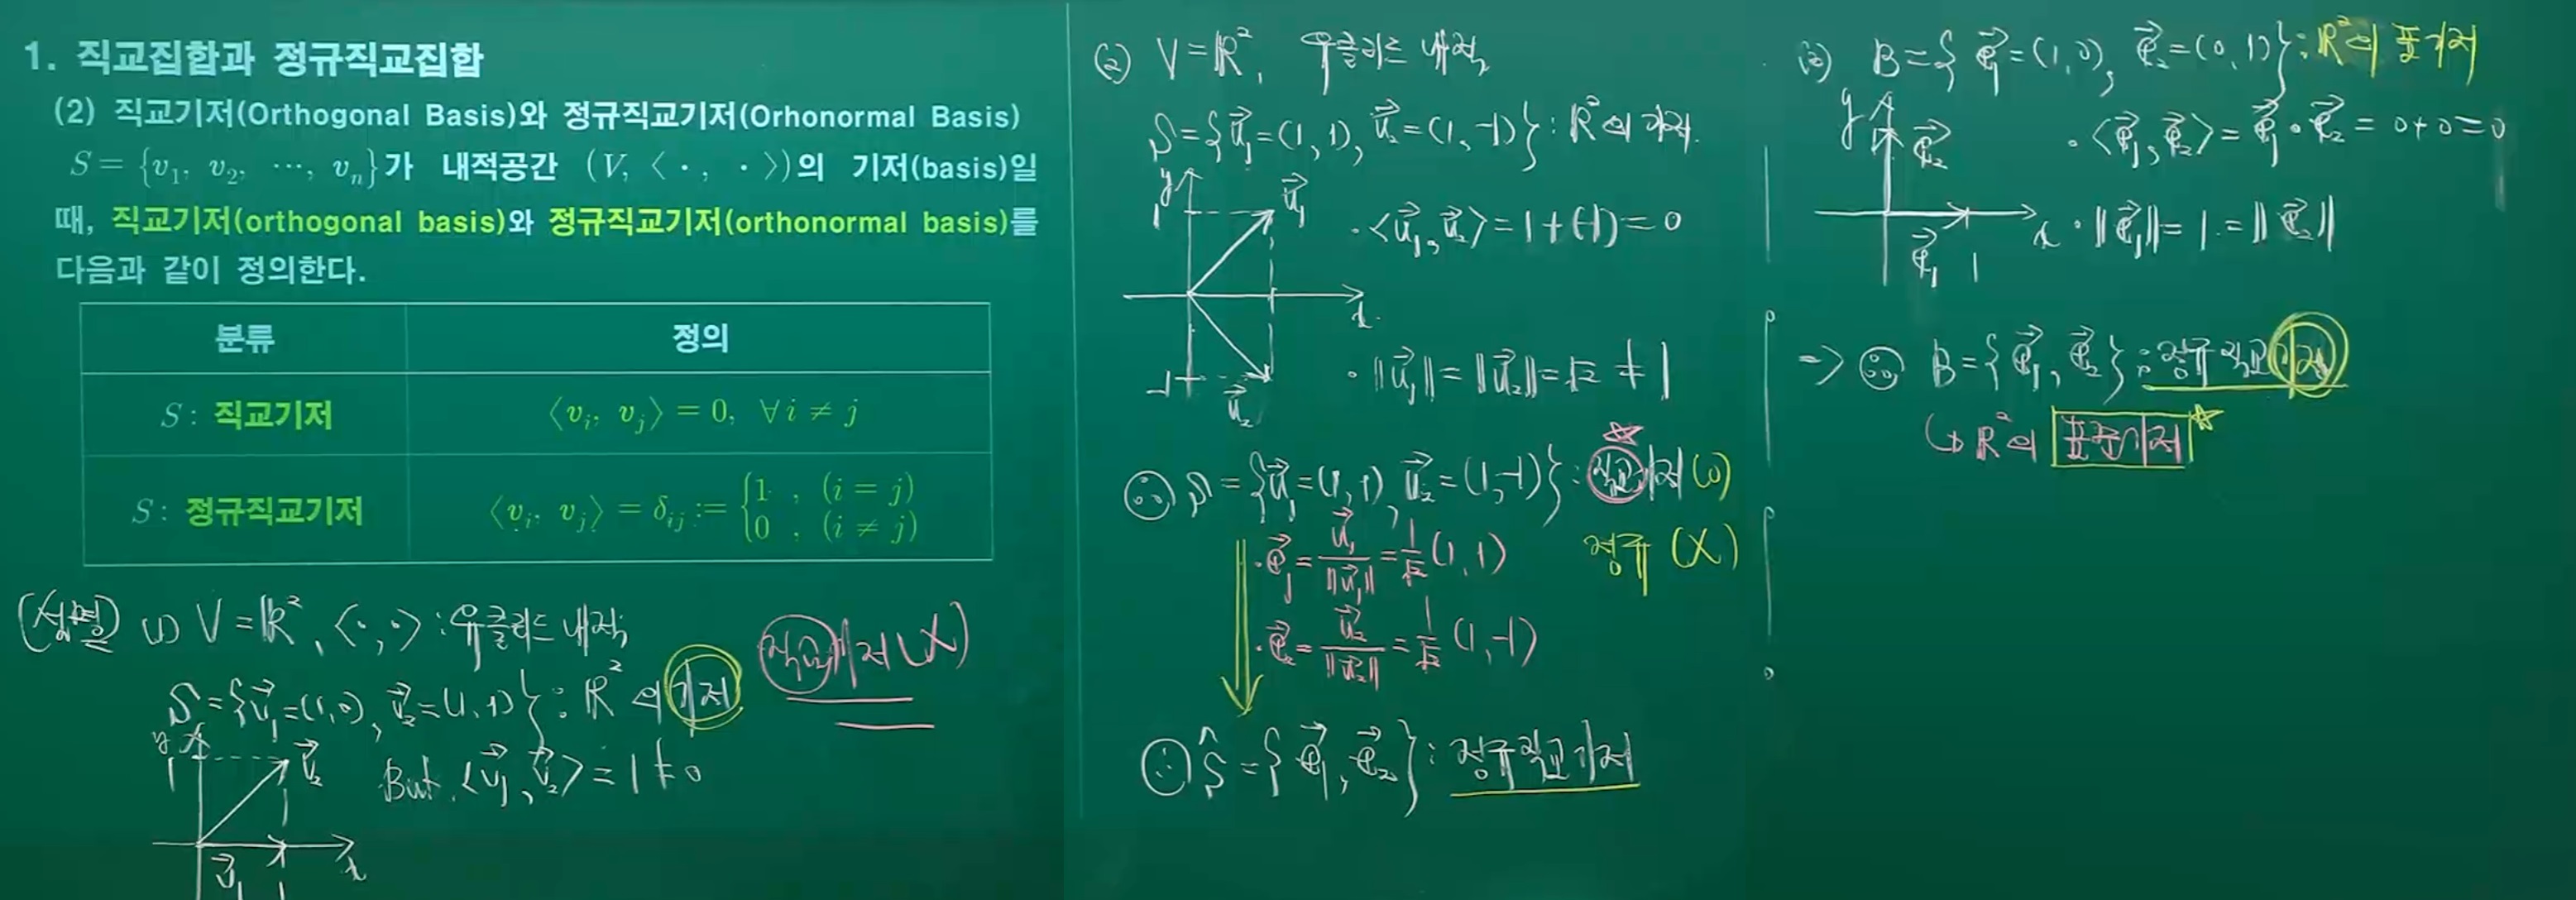 1. 직교집합과 정규직교집합
(2) 직교기저(Orthogonal Basis)와 정규직교기저(Orhonormal Basis)
S = {v₁, v₂, ⋯, vₙ}가 내적공간 (V, 〈 · , · 〉)의 기저(basis)일
때, 직교기저(orthogonal basis)와 정규직교기저(orthonormal basis)를
다음과 같이 정의한다.
분류 정의
S : 직교기저 〈vᵢ, vⱼ〉 = 0, ∀ i ≠ j
S : 정규직교기저 〈vᵢ, vⱼ〉 = δᵢⱼ := { 1 , (i = j)
0 , (i ≠ j)
(설명) (1) V = ℝ², 〈·,·〉 : 유클리드 내적
직교기저(X)
S = {v⃗₁ = (1, 0), v⃗₂ = (1, 1)} : ℝ²의 기저
y
1 v⃗₂ But, 〈v⃗₁, v⃗₂〉 = 1 ≠ 0
x
v⃗₁ 1
(2) V = ℝ², 유클리드 내적
S = {u⃗₁ = (1, 1), u⃗₂ = (1, -1)} : ℝ²의 기저.
y
1 u⃗₁
· 〈u⃗₁, u⃗₂〉 = 1 + (-1) = 0
x
· ‖u⃗₁‖ = ‖u⃗₂‖ = √2 ≠ 1
-1 u⃗₂
∴ S = {u⃗₁ = (1, 1), u⃗₂ = (1, -1)} : 직교기저 (O)
정규 (X)
· e⃗₁ = u⃗₁/‖u⃗₁‖ = 1/√2 (1, 1)
· e⃗₂ = u⃗₂/‖u⃗₂‖ = 1/√2 (1, -1)
∴ Ŝ = {e⃗₁, e⃗₂} : 정규직교기저
(3) B = {e⃗₁ = (1, 0), e⃗₂ = (0, 1)} : ℝ²의 표준기저
y
e⃗₂
· 〈e⃗₁, e⃗₂〉 = e⃗₁ · e⃗₂ = 0 + 0 = 0
x
· ‖e⃗₁‖ = 1 = ‖e⃗₂‖
e⃗₁ 1
⇒ ∴ B = {e⃗₁, e⃗₂} : 정규직교기저
↳ ℝ²의 표준기저 ☆